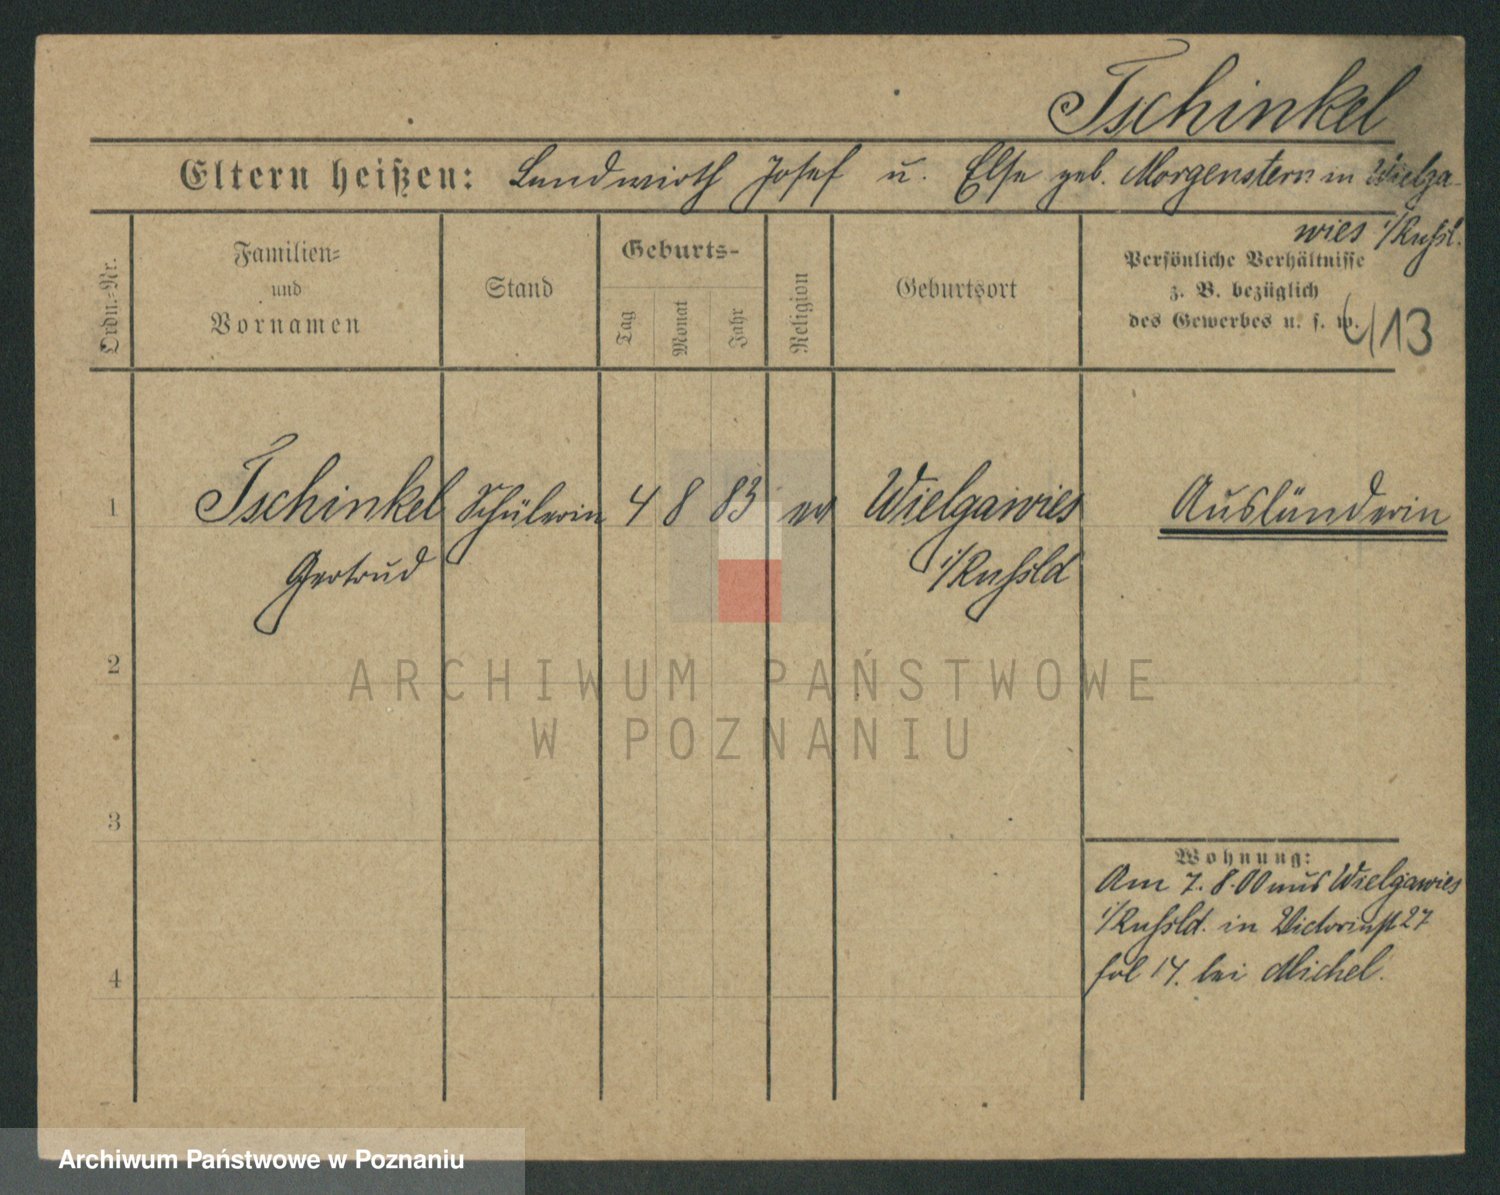 Tschinkel
Eltern heißen: Landwirth Josef u. Else geb. Morgenstern in Wielga-
wies i/Russl.
Ordn.-Nr.
Familien-
und
Vornamen
Stand
Geburts-
Tag
Monat
Jahr
Religion
Geburtsort
Persönliche Verhältnisse
z. B. bezüglich
des Gewerbes u. s. w.
13
1 Tschinkel Schülerin 4 8 83 ev Wielgawies Ausländerin
Gertrud i/Russld
2
ARCHIWUM PAŃSTWOWE
W POZNANIU
3
Wohnung:
Am 7. 8. 00 aus Wielgawies
i/Russld. in Victoriast 27
fol 14. bei Michel.
4
Archiwum Państwowe w Poznaniu